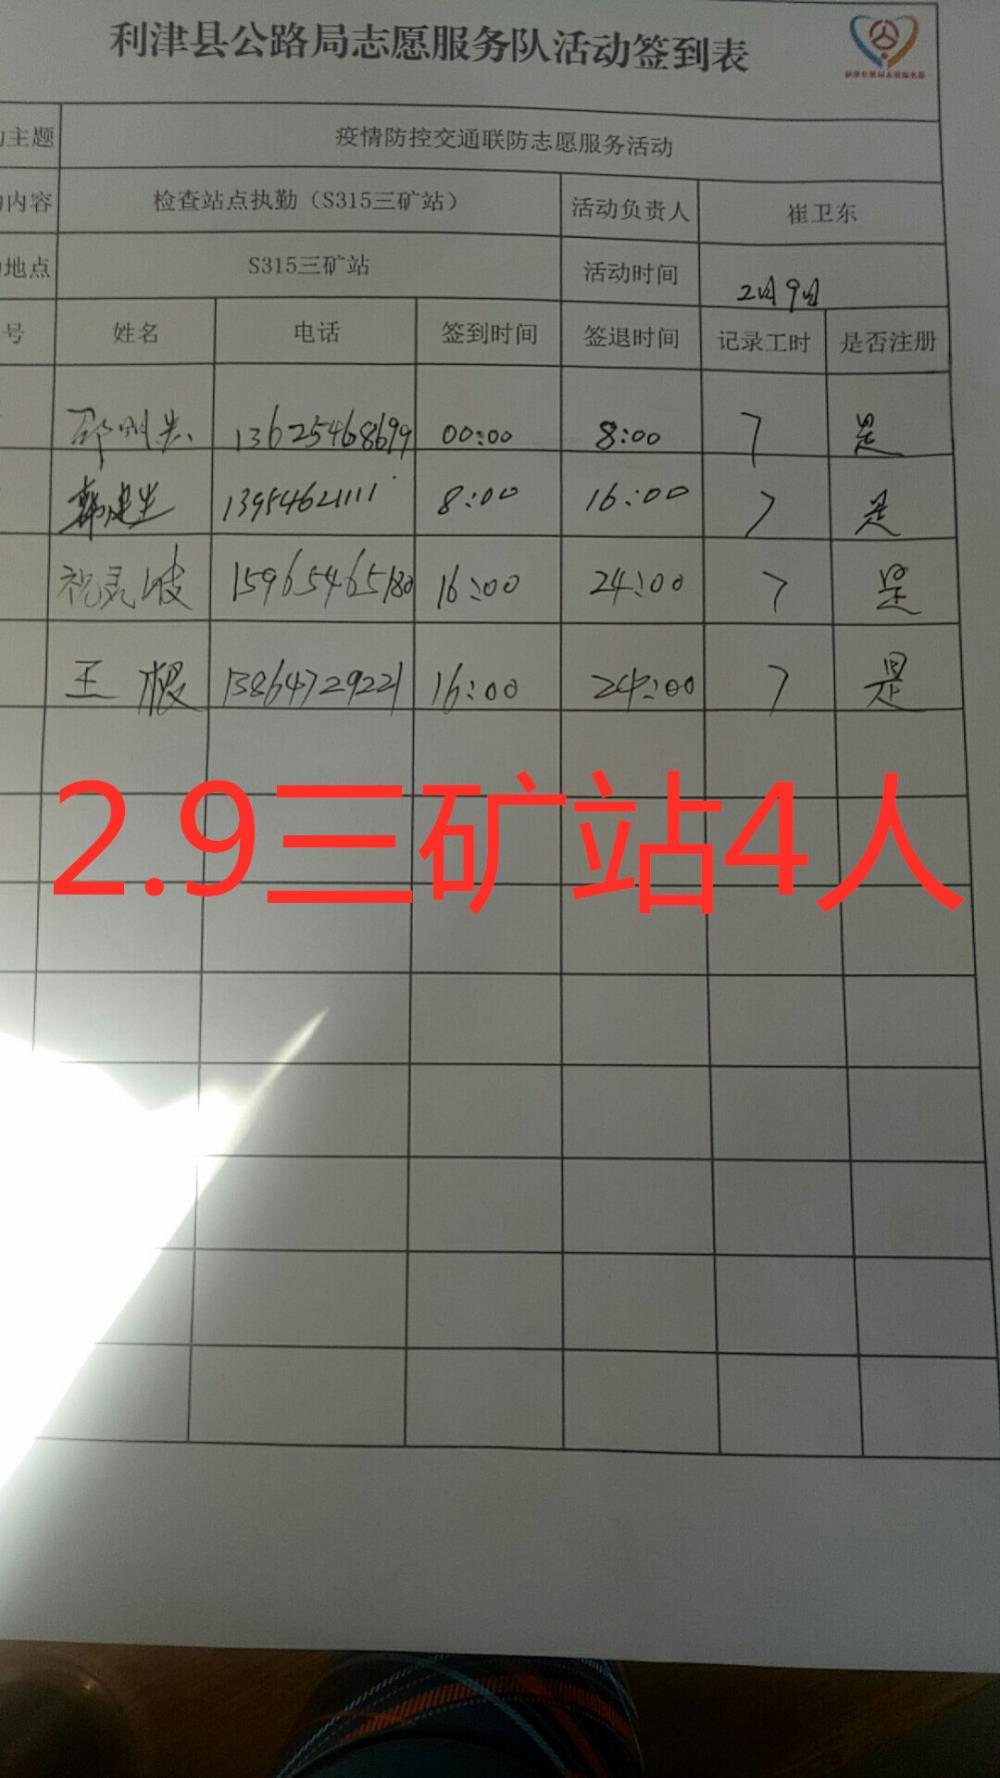 利津县公路局志愿服务队活动签到表
主题 疫情防控交通联防志愿服务活动
内容 检查站点执勤（S315三矿站） 活动负责人 崔卫东
地点 S315三矿站 活动时间 2月9日
号 姓名 电话 签到时间 签退时间 记录工时 是否注册
邵明 13625468699 00:00 8:00 7 是
韩建生 13954621111 8:00 16:00 7 是
祝灵波 15965465180 16:00 24:00 7 是
王根 13864729221 16:00 24:00 7 是
2.9三矿站4人